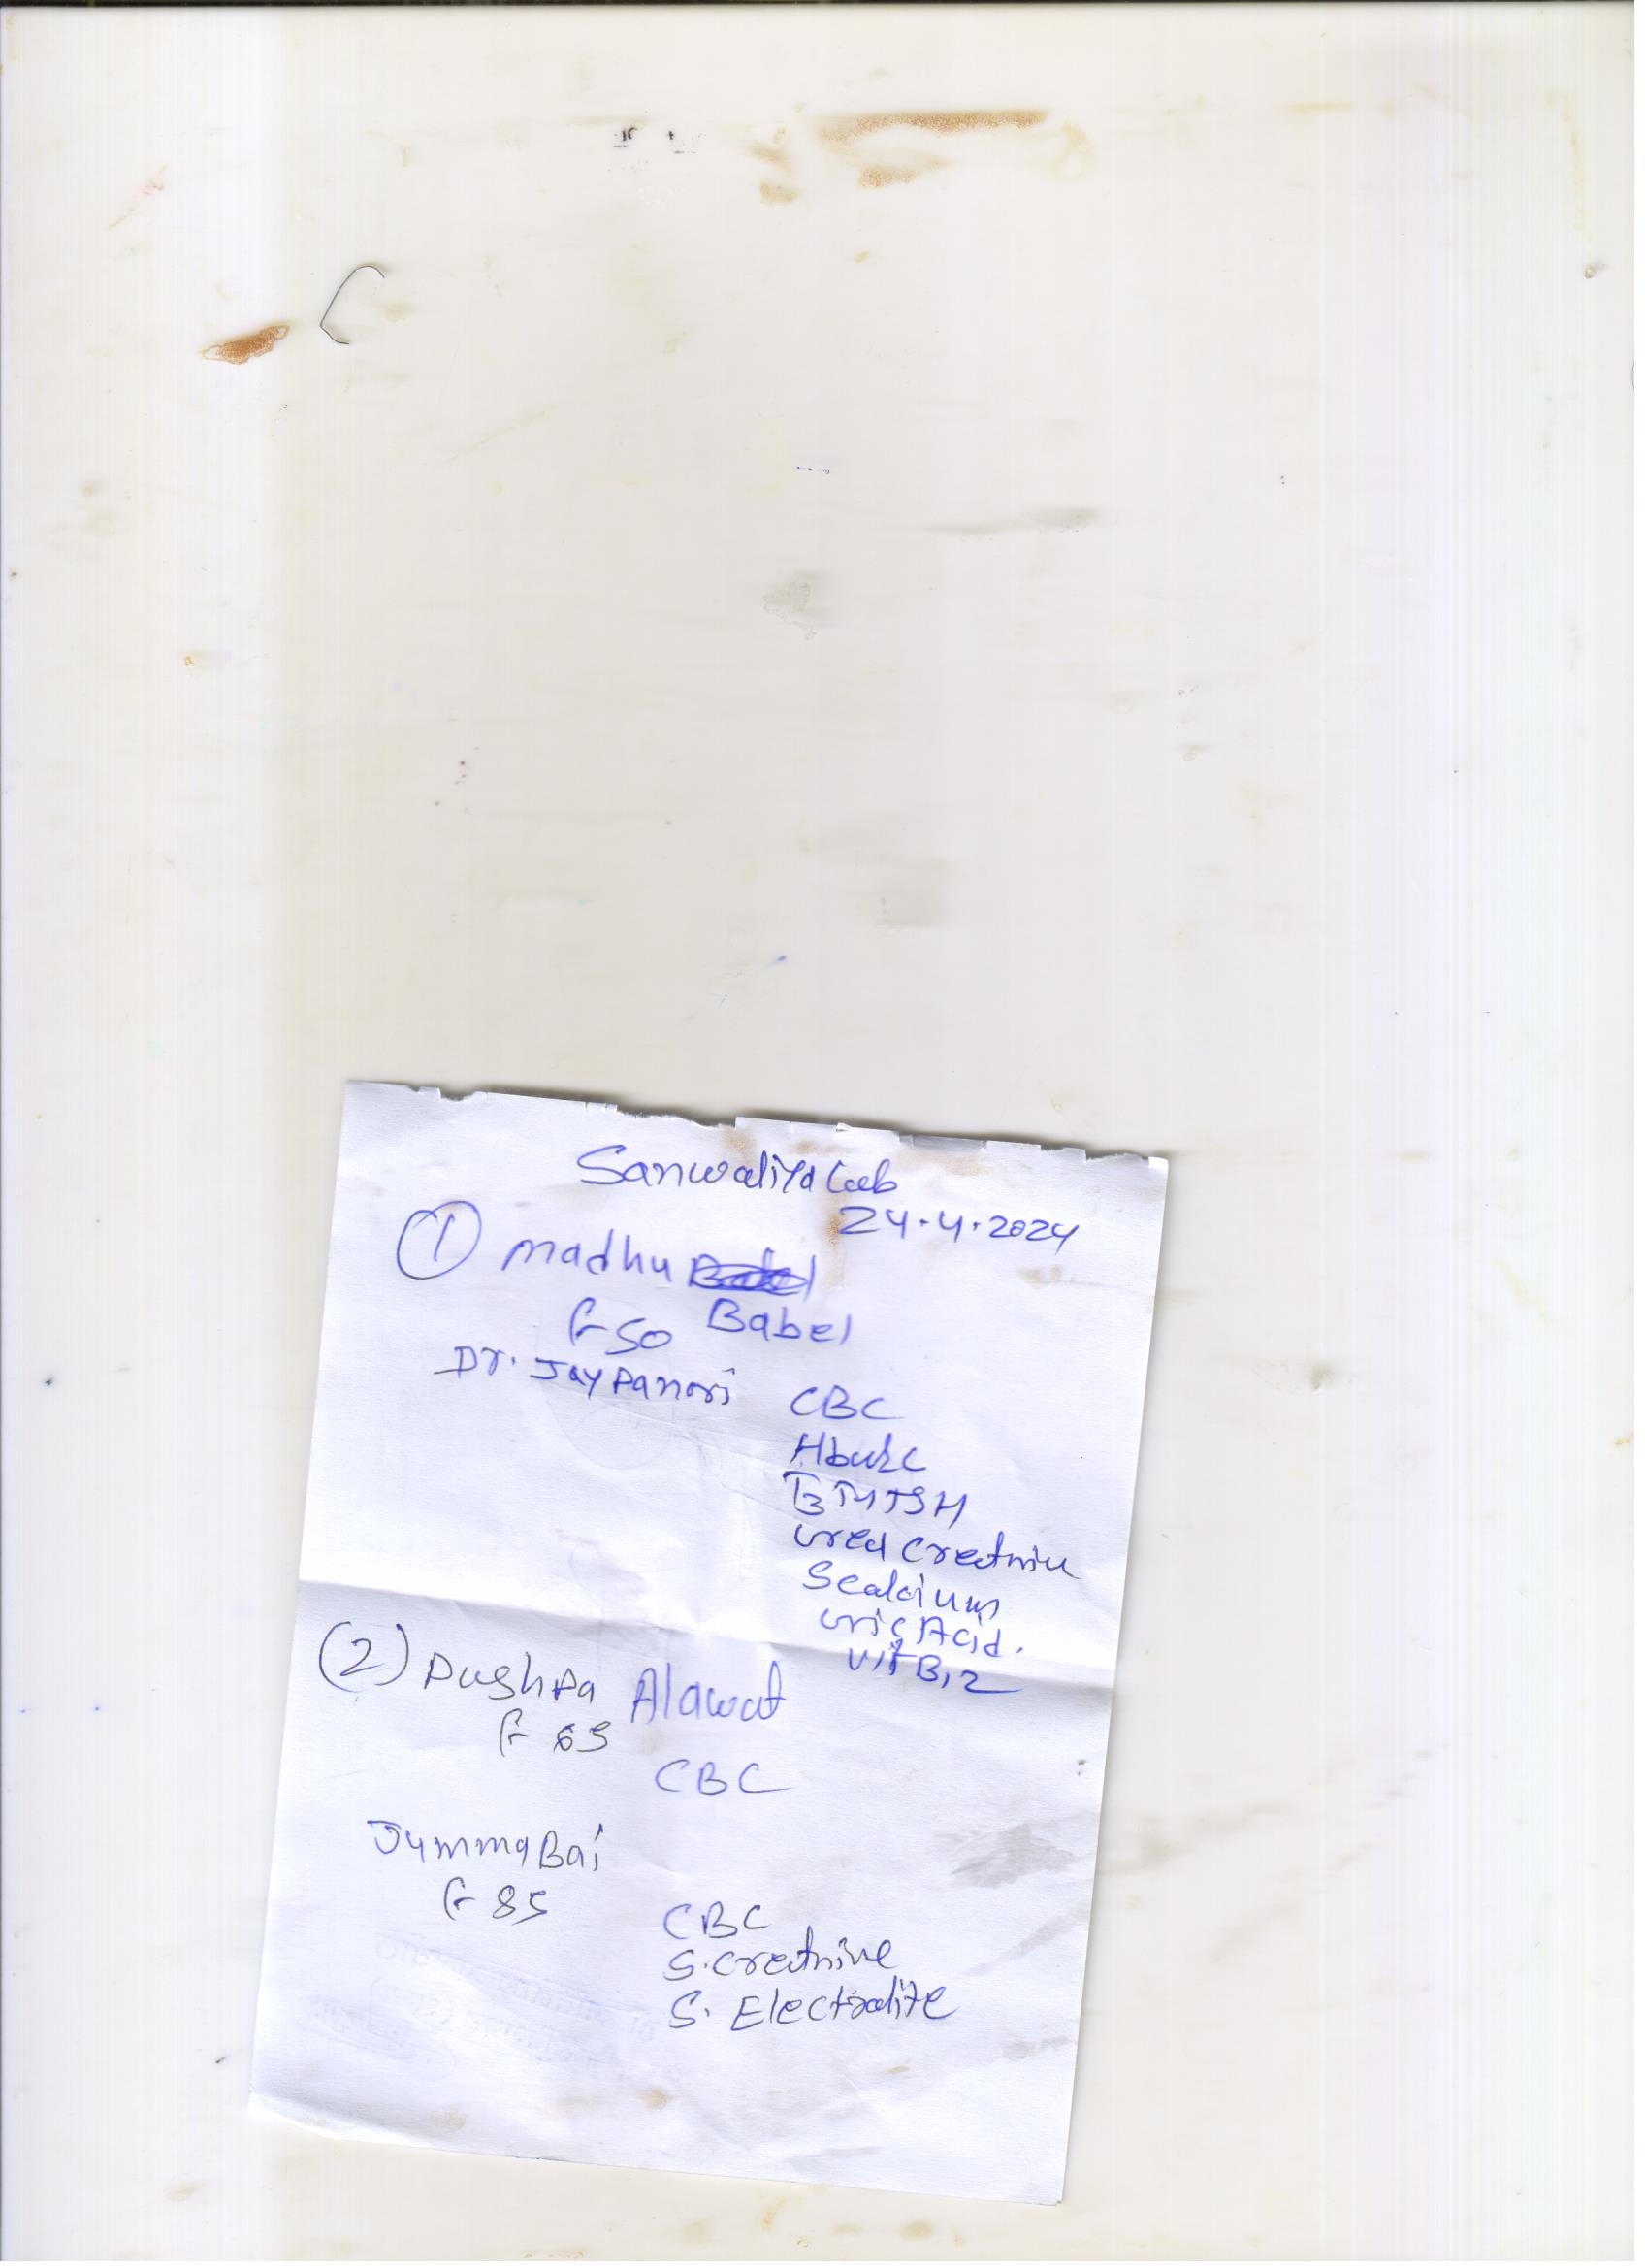 Sanwaliya Lab
24.4.2024
① Madhu
Babel
F 50
Dr. Jay Panori
CBC
T3 T4 TSH
Urea Creatnine
S calcium
Uric Acid.
Vit B12
(2) Pushpa Alawat
F 65
CBC
Jumma Bai
F 85
CBC
S. Creatnine
S. Electralite